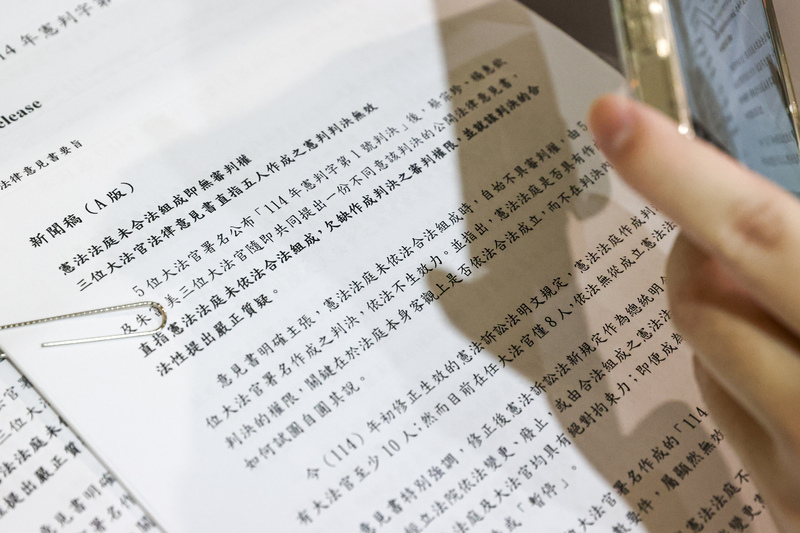 14 年憲判字第
elease
法律意見書要旨
新聞稿（A 版）
憲法法庭未合法組成即無審判權
三位大法官法律意見書直指五人作成之憲判判決無效
5 位大法官署名公布「114 年憲判字第 1 號判決」後，蔡宗珍、楊惠欽
及 美三位大法官隨即共同提出一份不同意該判決的公開法律意見書，
直指憲法法庭未依法合法組成，欠缺作成判決之審判權限，並就該判決的合
法性提出嚴正質疑。
意見書明確主張，憲法法庭未依法合法組成時，自始不具審判權，由 5
位大法官署名作成之判決，依法不生效力。並指出，憲法法庭是否具有作
判決的權限，關鍵在於法庭本身客觀上是否依法合法成立，而不在判決
如何試圖自圓其說。
今（114）年初修正生效的憲法訴訟法明文規定，憲法法庭作成判
有大法官至少 10 人；然而目前在任大法官僅 8 人，依法無從成立憲法
意見書特別強調，修正後憲法訴訟法新規定作為總統明
經立法院依法變更、廢止，或由合法組成之憲法法
法庭及大法官均具有絕對拘束力；即便成為
或「暫停」。
大法官署名作成的「114
要件，屬顯然無效
憲法法庭不
變更
三位大
憲法法庭未
提出嚴正質
意見書明確
署名作